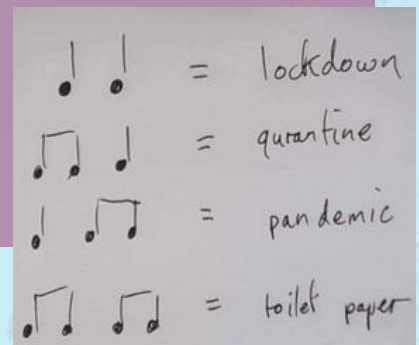 = lockdown
= qurantine
= pandemic
= toilet paper